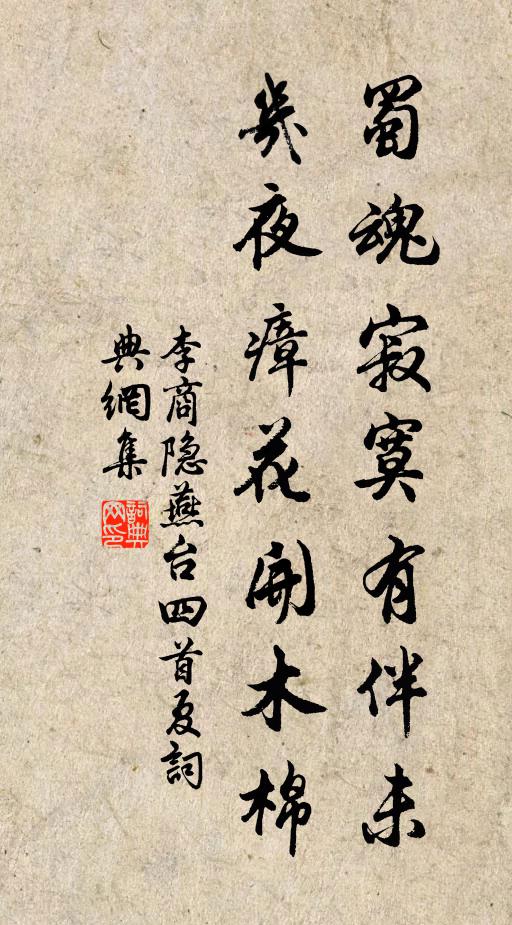 蜀魂寂寞有伴未
幾夜瘴花開木棉
李商隐燕台四首夏詞
典網集
詞典网印